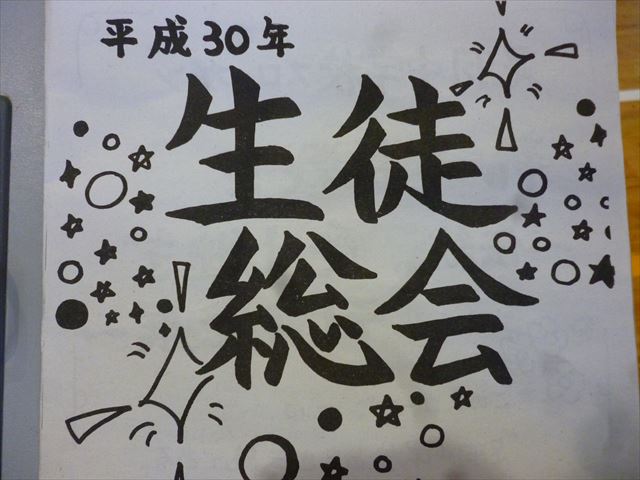 平成30年
生徒
総会